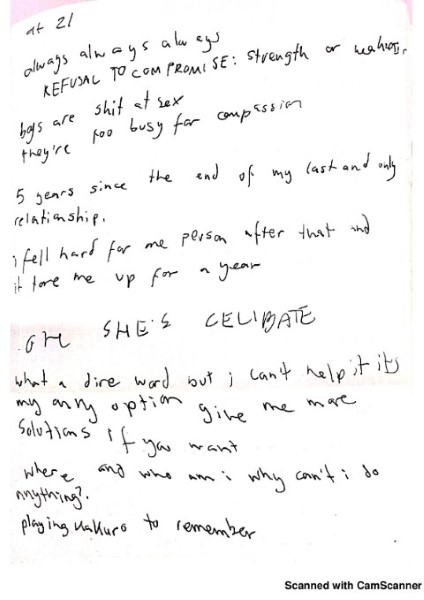 at 21
always always always
REFUSAL TO COMPROMISE: strength or
boys are shit at sex
they're too busy for compassion
5 years since the end of my last and only
relationship.
i fell hard for one person after that and
it tore me up for a year
OH SHE'S CELIBATE
what a dire word but i can't help it its
my only option give me more
solutions if you want
where and who am i why can't i do
anything?.
playing kakuro to remember
Scanned with CamScanner